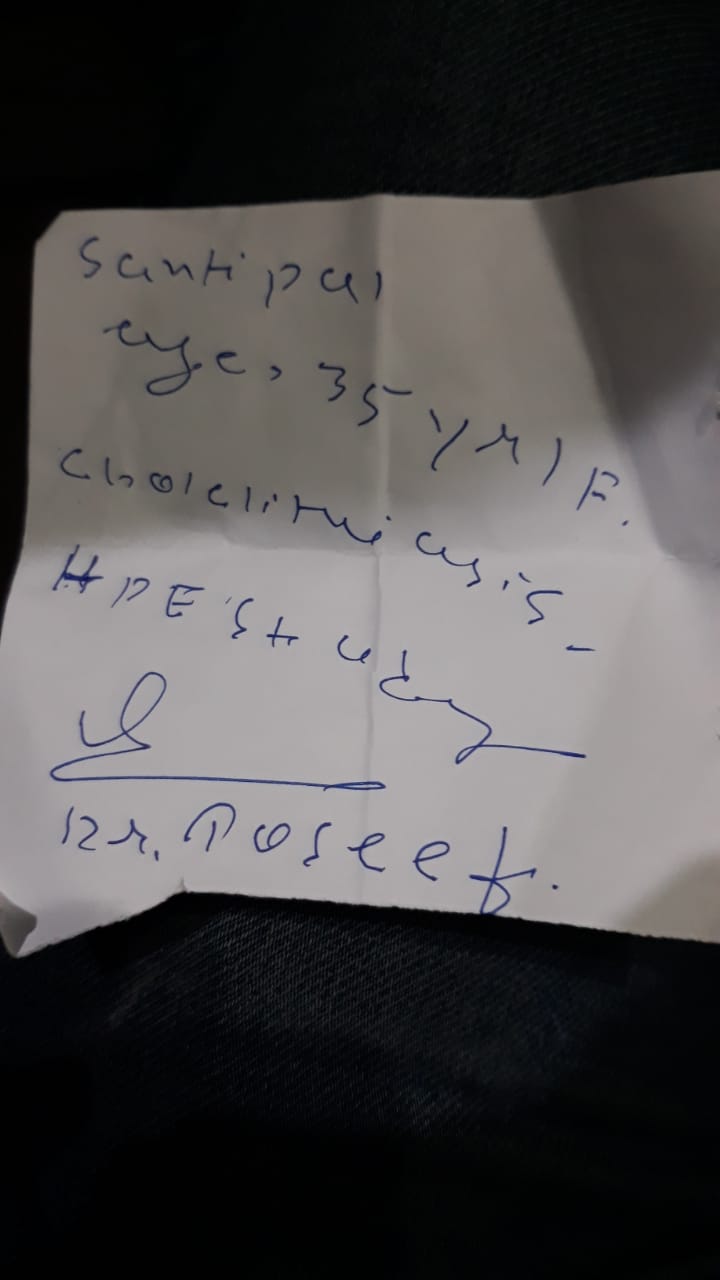 Santi pal
age, 35 yr / F.
Cholelithiasis -
HPE Study
Dr. Toseef.